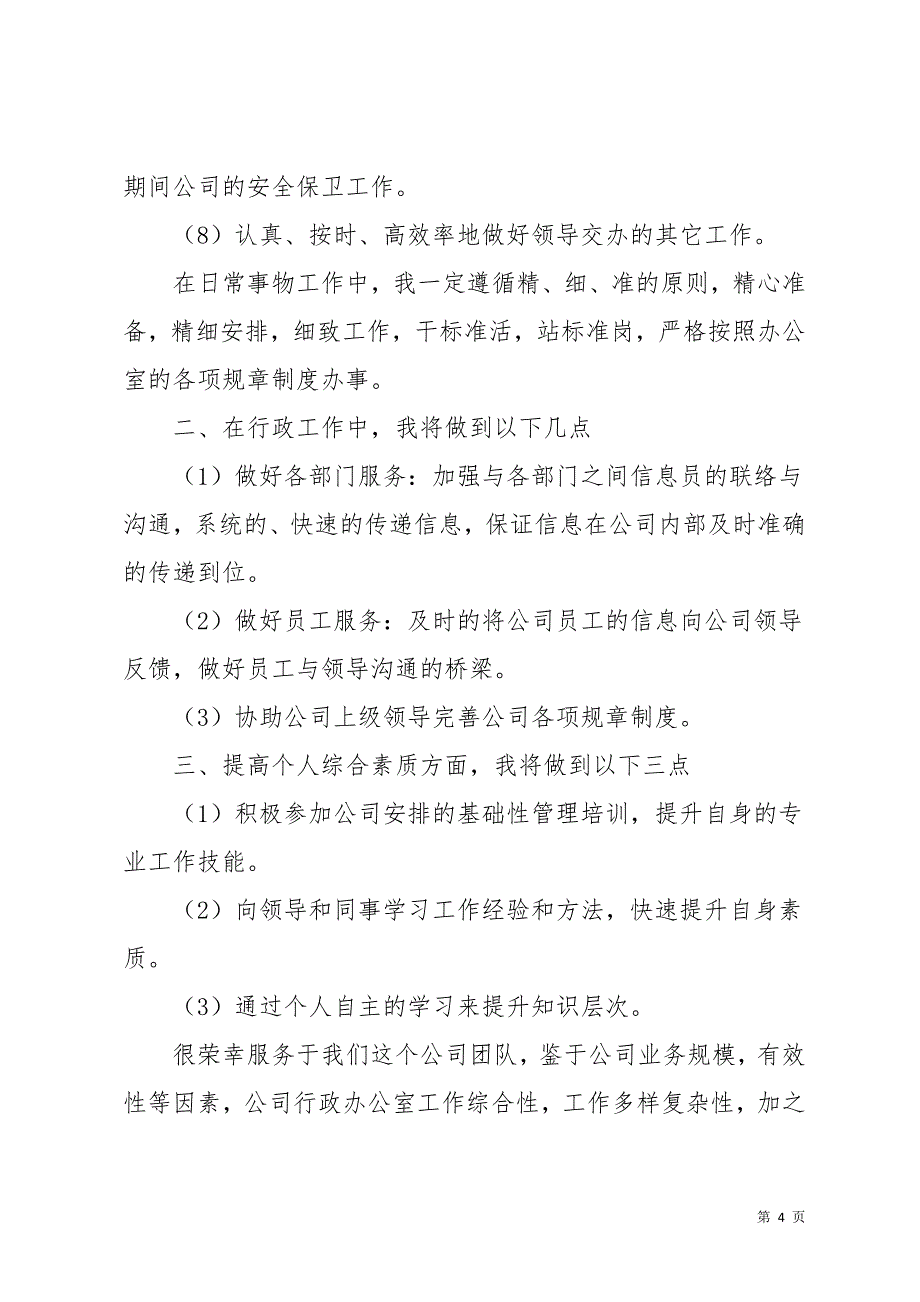 期间公司的安全保卫工作。
（8）认真、按时、高效率地做好领导交办的其它工作。
在日常事物工作中，我一定遵循精、细、准的原则，精心准
备，精细安排，细致工作，干标准活，站标准岗，严格按照办公
室的各项规章制度办事。
二、在行政工作中，我将做到以下几点
（1）做好各部门服务：加强与各部门之间信息员的联络与
沟通，系统的、快速的传递信息，保证信息在公司内部及时准确
的传递到位。
（2）做好员工服务：及时的将公司员工的信息向公司领导
反馈，做好员工与领导沟通的桥梁。
（3）协助公司上级领导完善公司各项规章制度。
三、提高个人综合素质方面，我将做到以下三点
（1）积极参加公司安排的基础性管理培训，提升自身的专
业工作技能。
（2）向领导和同事学习工作经验和方法，快速提升自身素
质。
（3）通过个人自主的学习来提升知识层次。
很荣幸服务于我们这个公司团队，鉴于公司业务规模，有效
性等因素，公司行政办公室工作综合性，工作多样复杂性，加之
第 4 页